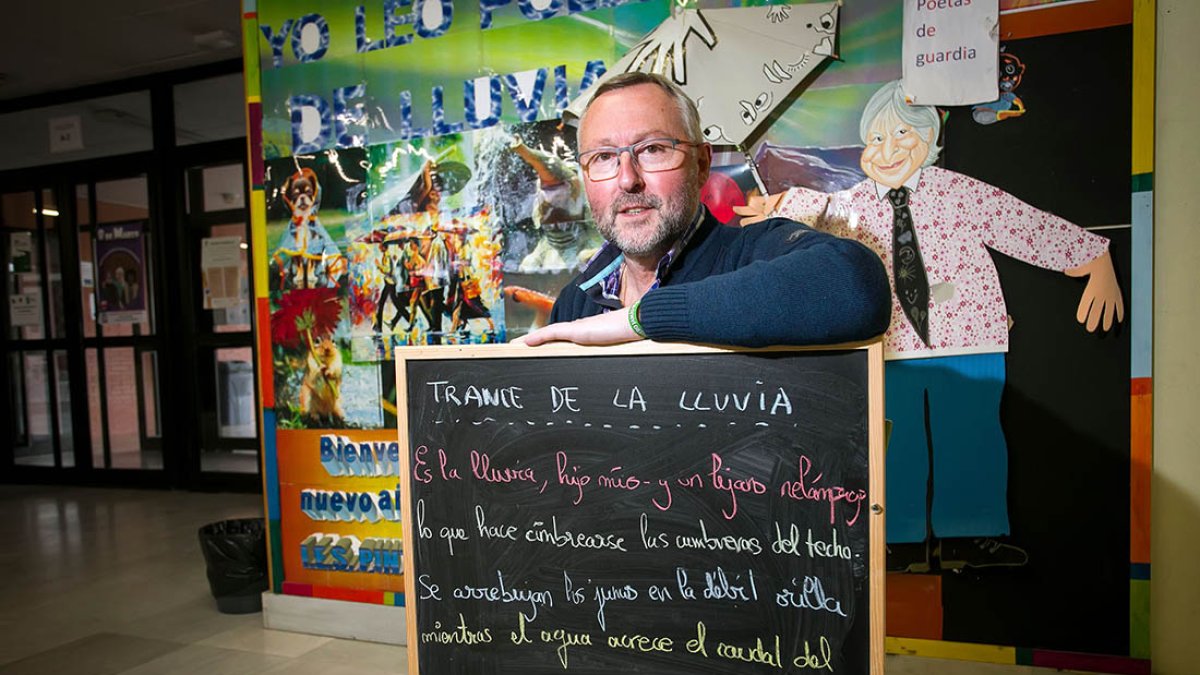 YO LEO
DE LLUVIA
Poetas
de
guardia
TRANCE DE LA LLUVIA
Es la lluvia, hijo mío - y un lejano relámpago
lo que hace cimbrearse las cumbreras del techo.
Se arrebujan los juncos en la débil orilla
mientras el agua acrece el caudal del
Bienve
nuevo a
I.E.S. PINT